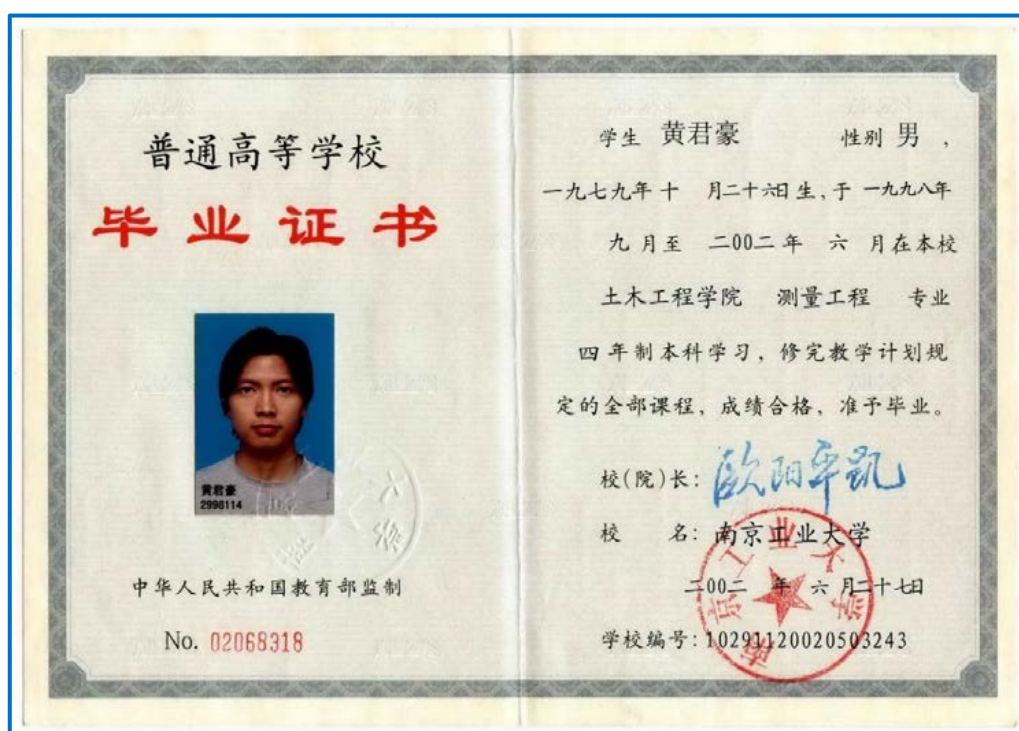 普通高等学校
毕业证书
黄君豪
2998114
中华人民共和国教育部监制
No. 02068318
学生 黄君豪 性别 男 ,
一九七九年十 月二十六日生,于 一九九八年
九月至 二00二年 六 月在本校
土木工程学院 测量工程 专业
四年制本科学习，修完教学计划规
定的全部课程，成绩合格，准予毕业。
校(院)长: 欧阳平凯
校 名: 南京工业大学
二00二 年 六 月二十七日
学校编号:10291120020503243
南京工业大学